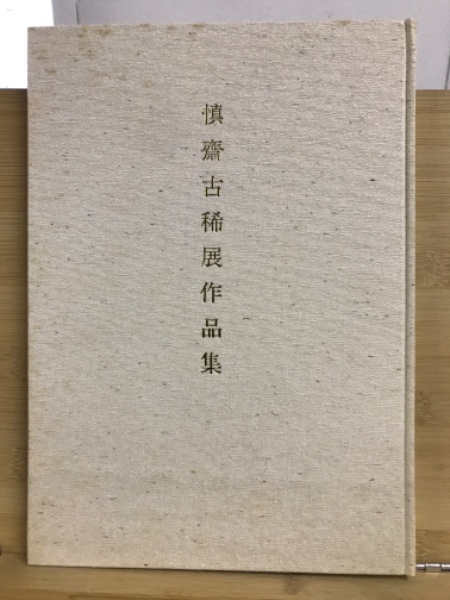 慎齋古稀展作品集